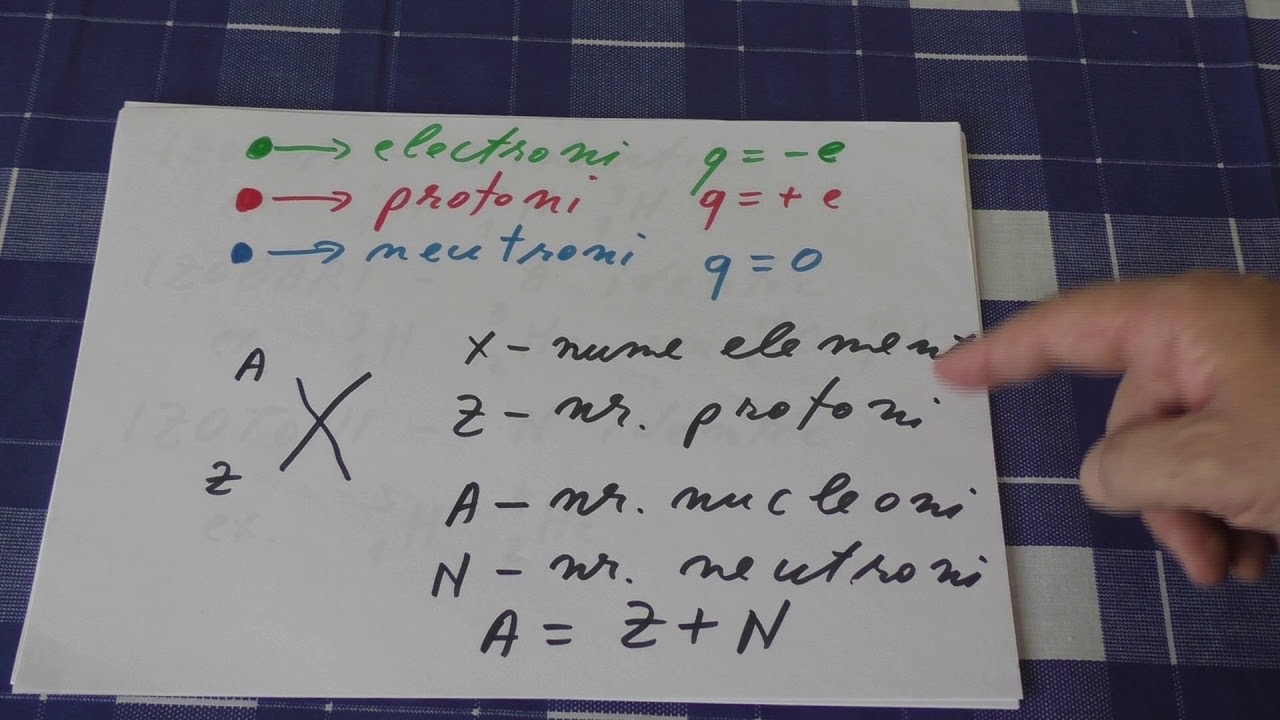 → electroni q = - e
→ protoni q = + e
→ neutroni q = 0
A
X
Z
x - nume element
Z - nr. protoni
A - nr. nucleoni
N - nr. neutroni
A = Z + N